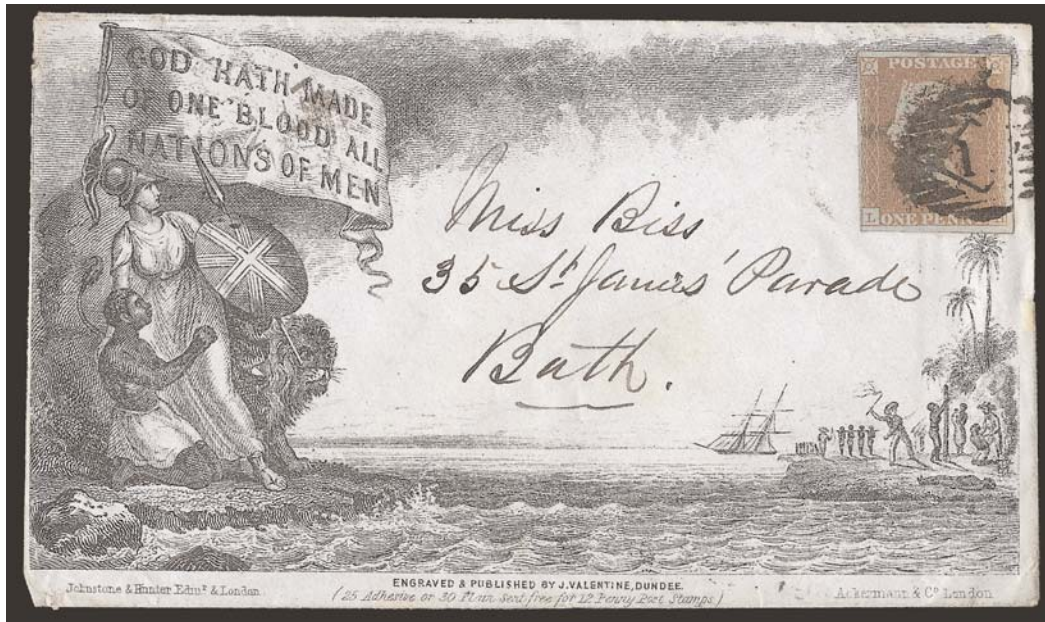 GOD HATH MADE
OF ONE BLOOD ALL
NATIONS OF MEN
POSTAGE
L ONE PENNY
Miss Biss
35 St. James' Parade
Bath.
Johnstone & Hunter Edinr & London
ENGRAVED & PUBLISHED BY J. VALENTINE, DUNDEE.
(25 Adhesive or 30 Plain Sent free for 12 Penny Post Stamps)
Ackermann & Co London